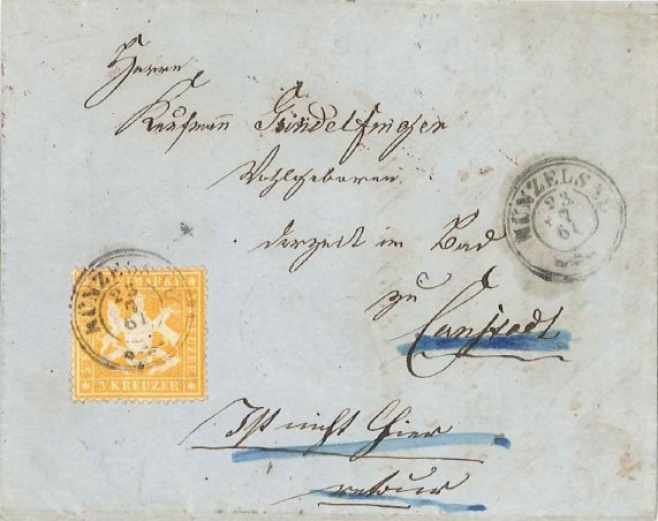 Herrn
Kaufmann Gundelfinger
Wohlgeboren
derzeit in Bad
zu
Canstadt
Ist nicht hier
retour
KÜNZELSAU
23
7
61
KÜNZELSAU
23
7
61
3 KREUZER